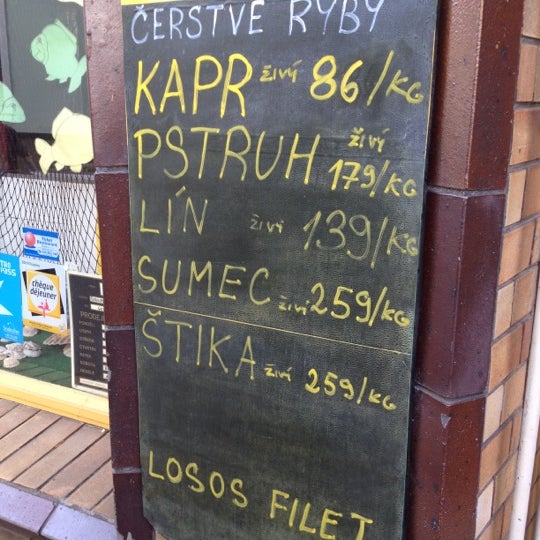 ČERSTVÉ RYBY
KAPR živí 86/KG
PSTRUH živí 179/KG
LÍN živí 139/KG
SUMEC živí 259/KG
ŠTIKA živí 259/KG
LOSOS FILET
chèque
déjeuner